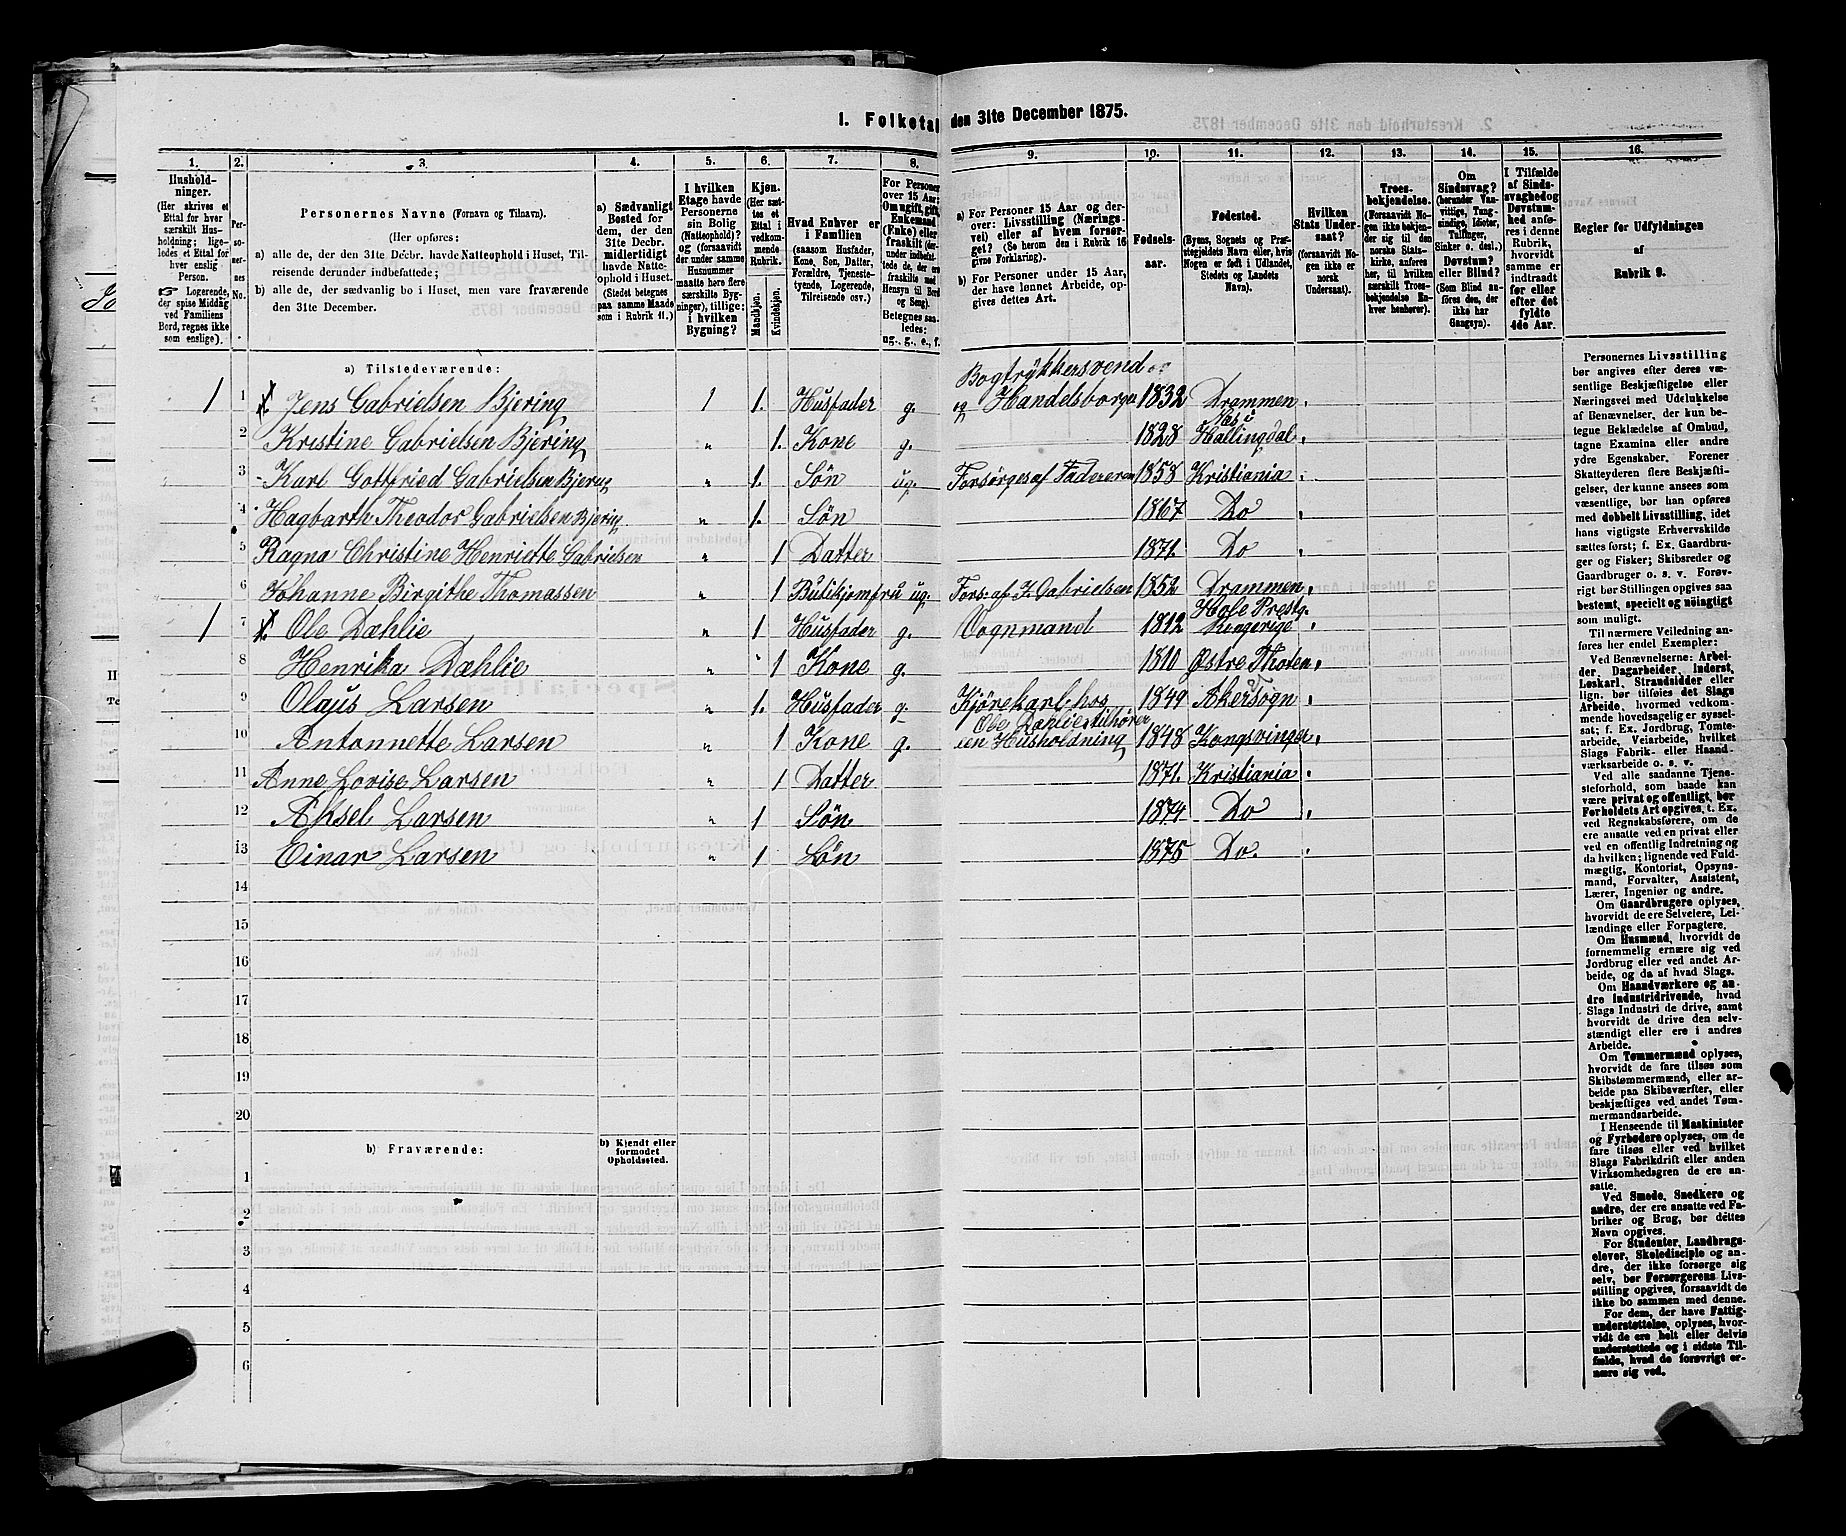 1. Folketal den 31te December 1875.
1.
2.
3.
4.
5.
6.
7.
8.
9.
10.
11.
12.
13.
14.
15.
16.
Husholdninger.
(Her skrives et
Ettal for hver
særskilt Husholdning;
ligeledes et Ettal for
hver enslig
Person.
Logerende,
der spise Middag
ved Familiens
Bord, regnes ikke
som enslige).
Personernes No.
Personernes Navne (Fornavn og Tilnavn).
(Her opføres:
a) alle de, der den 31te Decbr. havde Natteophold i Huset, Tilreisende derunder indbefattede;
b) alle de, der sædvanlig bo i Huset, men vare fraværende den 31te December.
a) Sædvanligt
Bosted for
dem, der den
31te Decbr.
midlertidigt
havde Natteophold i Huset.
(Stedet betegnes
paa samme Maade
som i Rubrik 11.)
I hvilken
Etage havde
Personerne
sin Bolig
(Natteophold)?
og (forsaavidt
der under samme
Husnummer
maatte høre flere
særskilte Bygninger), tillige:
i hvilken
Bygning?
Kjøn.
(Her sættes et
Ettal i
vedkommende
Rubrik.
Mandkjøn.
Kvindekjøn.
Hvad Enhver er
i Familien
(saasom Husfader,
Kone, Søn, Datter,
Forældre, Tjenestetyende, Logerende,
Tilreisende osv.)
For Personer
over 15 Aar:
Om ugift, gift,
Enkemand
(Enke) eller
fraskilt
Betegnes saaledes:
ug., g., e., f.
a) For Personer 15 Aar og derover: Livsstilling (Næringsvei) eller af hvem forsørget? (Se herom den i Rubrik 16
givne Forklaring).
b) For Personer under 15 Aar,
der have lønnet Arbeide, opgives dettes Art.
Fødselsaar.
Fødested.
(Byens, Sognets og Præstegjeldets Navn eller, hvis
Nogen er født i Udlandet,
Stedets og Landets
Navn).
Hvilken
Stats Undersaat?
(forsaavidt Nogen ikke er
norsk
Undersaat).
Troesbekjendelse.
(Forsaavidt Nogen ikke bekjender sig til den
norske Statskirke, anføres
her, til hvilken
særskilt Troesbekjendelse Enhver henhører).
Om
Sindssvag?
(herunder Vanvittige, Tungsindige, Idioter,
Tullinger,
Sinker o. desl.)
Døvstum?
eller Blind?
(Som Blind anføres den, der
ikke har
Gangsyn).
I Tilfælde
af Sindssvaghed og
Døvstumhed anføres i denne
Rubrik,
hvorvidt
samme er
indtraadt
før eller
efter det
fyldte
4de Aar.
Regler for Udfyldningen
af
Rubrik 9.
a) Tilstedeværende:
Bogtrykkersvend
1 1 Jens Gabrielsen Bjering 1 1. Husfader g. og Handelsborger 1832 Drammen
Næs i
2 Kristine Gabrielsen Bjering " 1. Kone g. 1828 Hallingdal
3 Karl Gottfried Gabrielsen Bjering " 1. Søn ug. Forsørges af Faderen 1858 Kristiania
4 Hagbarth Theodor Gabrielsen Bjering " 1. Søn 1867 Do
5 Ragna Christine Henriette Gabrielsen " 1 Datter 1871 Do
6 Johanne Birgithe Thomassen " 1 Butikjomfru ug. Fors. af J. Gabrielsen 1852 Drammen
Hole Prestg.
1 7 Ole Dæhlie " 1 Husfader g. Vognmand 1812 Ringerige
8 Henrika Dæhlie " 1 Kone g. 1810 Østre Thoten
9 Olaus Larsen " 1. Husfader g. Kjørekarl hos 1849 Akersogn
Ole Dæhlies tilhører
10 Antonnette Larsen " 1 Kone g. en Husholdning 1848 Kongsvinger
11 Anne Lovise Larsen " 1 Datter 1871. Kristiania
12 Aksel Larsen " 1 Søn 1874 Do
13 Einar Larsen " 1 Søn 1875 Do.
14
15
16
17
18
19
20
b) Fraværende:
b) Kjendt eller
formodet
Opholdssted.
1
2
3
4
5
6
Personernes Livsstilling
bør angives efter deres væsentlige Beskjæftigelse eller
Næringsvei med Udelukkelse
af Benævnelser, der kun betegne Beklædelse af Ombud,
tagne Examina eller andre
ydre Egenskaber. Forener
Skatteyderen flere Beskjæftigelser, der kunne ansees som
væsentlige, bør han opføres
med dobbelt Livsstilling, idet
hans vigtigste Erhvervskilde
sættes først; f. Ex. Gaardbruger og Fisker; Skibsreder og
Gaardbruger o. s. v. Forøvrigt bør Stillingen opgives saa
bestemt, specielt og nøiagtigt
som muligt.
Til nærmere Veiledning anføres her endel Exempler:
Ved Benævnelserne: Arbeider, Dagarbeider, Inderst,
Løskarl, Strandsidder eller
lign. bør tilføies det Slags
Arbeide, hvormed vedkommende hovedsagelig er sysselsat; f. Ex. Jordbrug, Tomtearbeide, Veiarbeide, hvilket
Slags Fabrik- eller Haandværksarbeide o. s. v.
Ved alle saadanne Tjenesteforhold, som baade kan
være privat og offentligt, bør
Forholdets Art opgives, t. Ex.
ved Regnskabsførere, om de
ere ansatte ved en privat eller
ved en offentlig Indretning og
da hvilken; lignende ved Fuldmægtig, Kontorist, Opsynsmand, Forvalter, Assistent,
Lærer, Ingeniør og andre.
Om Gaardbrugere oplyses,
hvorvidt de ere Selveiere, Leilændinge eller Forpagtere.
Om Husmænd, hvorvidt de
fornemmelig ernære sig ved
Jordbrug eller ved andet Arbeide, og da af hvad Slags.
Om Haandværkere og andre industridrivende, hvad
Slags Industri de drive, samt
hvorvidt de drive den selvstændigt eller ere i andres
Arbeide.
Om Tømmermænd oplyses,
hvorvidt de fare tilsøs som
Skibstømmermænd, eller arbeide paa Skibsværfter, eller
beskjæftiges ved andet Tømmermandsarbeide.
I Henseende til Maskinister
og Fyrbødere oplyses, om de
fare tilsøs eller ved hvilket
Slags Fabrikdrift eller anden
Virksomhedsgren de ere ansatte.
Ved Smede, Snedkere og
andre, der ere ansatte ved Fabriker og Brug, bør dettes
Navn opgives.
For Studenter, Landbrugselever, Skoledisciple og andre, der ikke forsørge sig
selv, bør Forsørgerens Livsstilling opgives, forsaavidt de
ikke bo sammen med denne.
For dem, der have Fattigunderstøttelse, oplyses, hvorvidt de ere helt eller delvis
understøttede og i sidste Tilfælde, hvad de forøvrigt ernære sig ved.